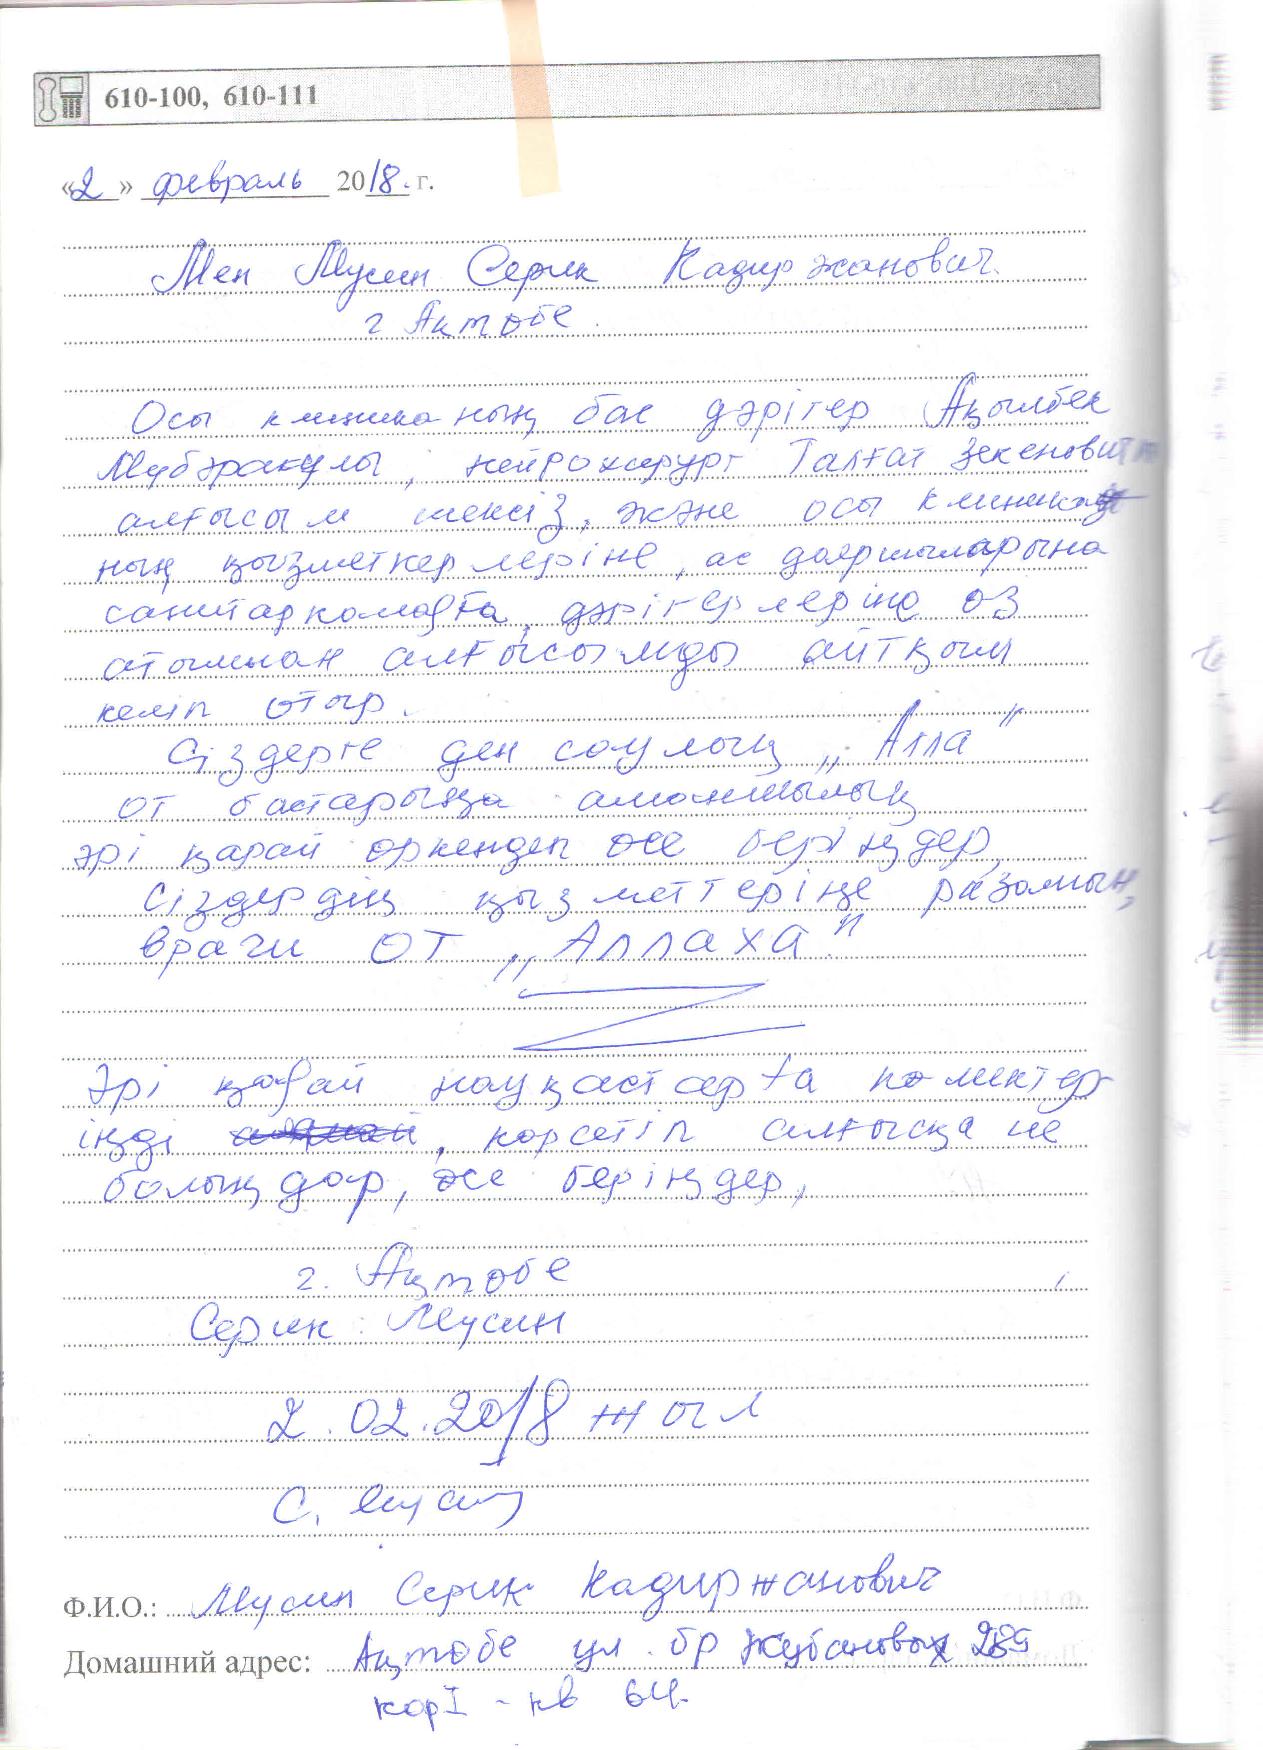 610-100, 610-111
«2» февраль 2018. г.
Мен Мусин Серик Кадиржанович.
г Ақтобе.
Осы клиниканың бас дәрігер Ақылбек
Мубәракулы, нейрохирург Талғат Зекенович
алғысым шексіз, және осы клиника
ның қызметкерлеріне, ас даяршыларына
санитаркаларға, дәрігерлеріңе өз
атымнан алғысымды айтқым
келіп отыр.
Сіздерге ден саулық „Алла"
от бастарыңа аманшылық
әрі қарай оркендеп өсе беріңдер,
Сіздердің қызметтеріңе разамын,
врачи от „Аллаха".
Әрі қарай науқастарға көмектер
іңді, көрсетіп алғысқа ие
болыңдар, өсе беріңдер,
г. Ақтобе
Серик Мусин
2.02.2018 жыл
С. Мусин
Ф.И.О.: Мусин Серик Кадиржанович
Домашний адрес: Ақтобе ул. бр Жубановых 289
кор I - кв 64.